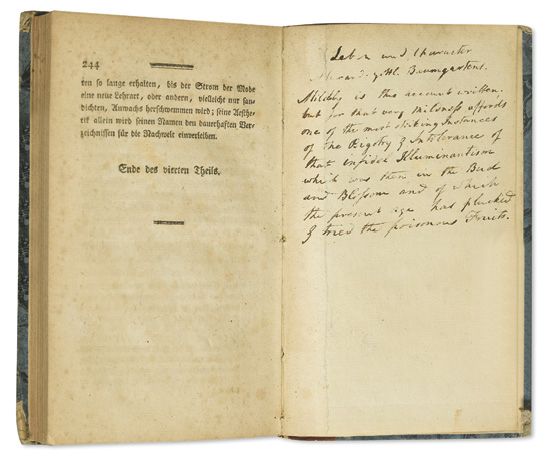 244
ten so lange erhalten, bis der Strom der Mode
eine neue Lehrart, oder andern, vielleicht nur san-
dichten, Anwachs herschwemmen wird; seine Aesthe-
tik allein wird seinen Namen den dauerhaften Ver-
zeichnissen für die Nachwelt einverleiben.
Ende des vierten Theils.
Leben und Character
Alexand. Baumgartens.
Mildly is this account written.
but for that very mildness affords
one of the most striking Instances
of the Bigotry & Intolerance of
that infidel Illuminantism
which was then in the Bud
and Blossom and of which
the present age has plucked
& tried the poisonous Fruits.